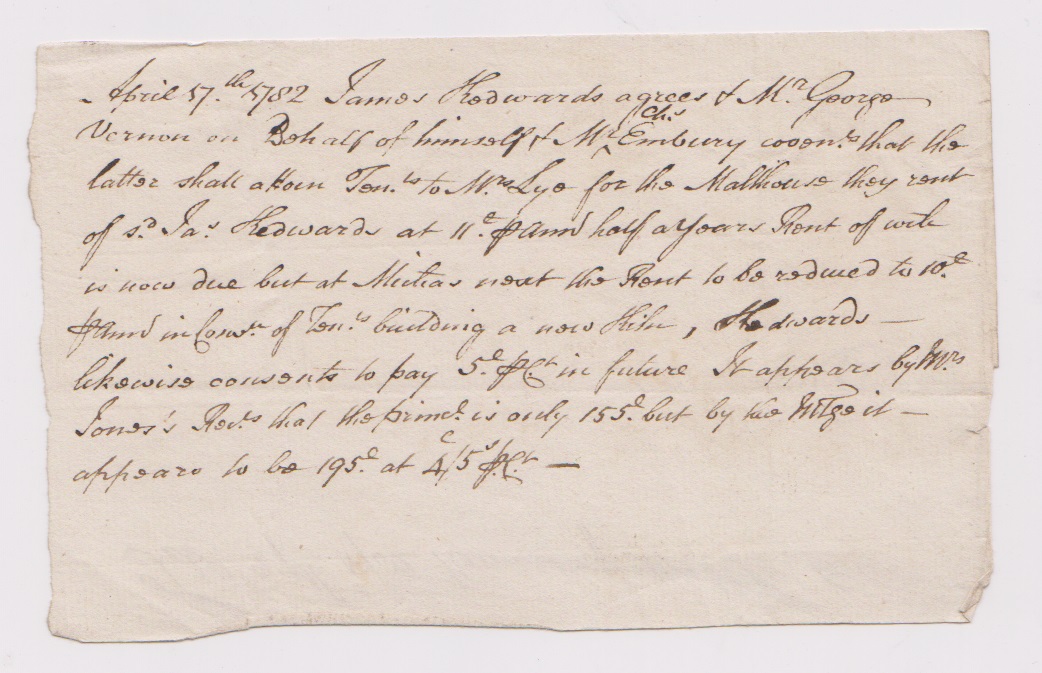 April 17.th 1782 James Hedwards agrees & Mr. George
Vernon on Behalf of himself & Mr. Chs Embury coven.ts that the
latter shall attorn Ten.ts to Mrs. Lye for the Malthouse they rent
of s.d Jas. Hedwards at 11£ p Ann half a Years Rent of wch
is now due but at Mich'as next the Rent to be reduced to 10£
p Ann in Cons.n of Ten.ts building a new Kiln, Hedwards —
likewise consents to pay 5£ p C.t in future It appears by Mrs
Jones's Rec.ts that the princ.l is only 155£ but by the Mtge it —
appears to be 195£ at 4£/5s p C.t —